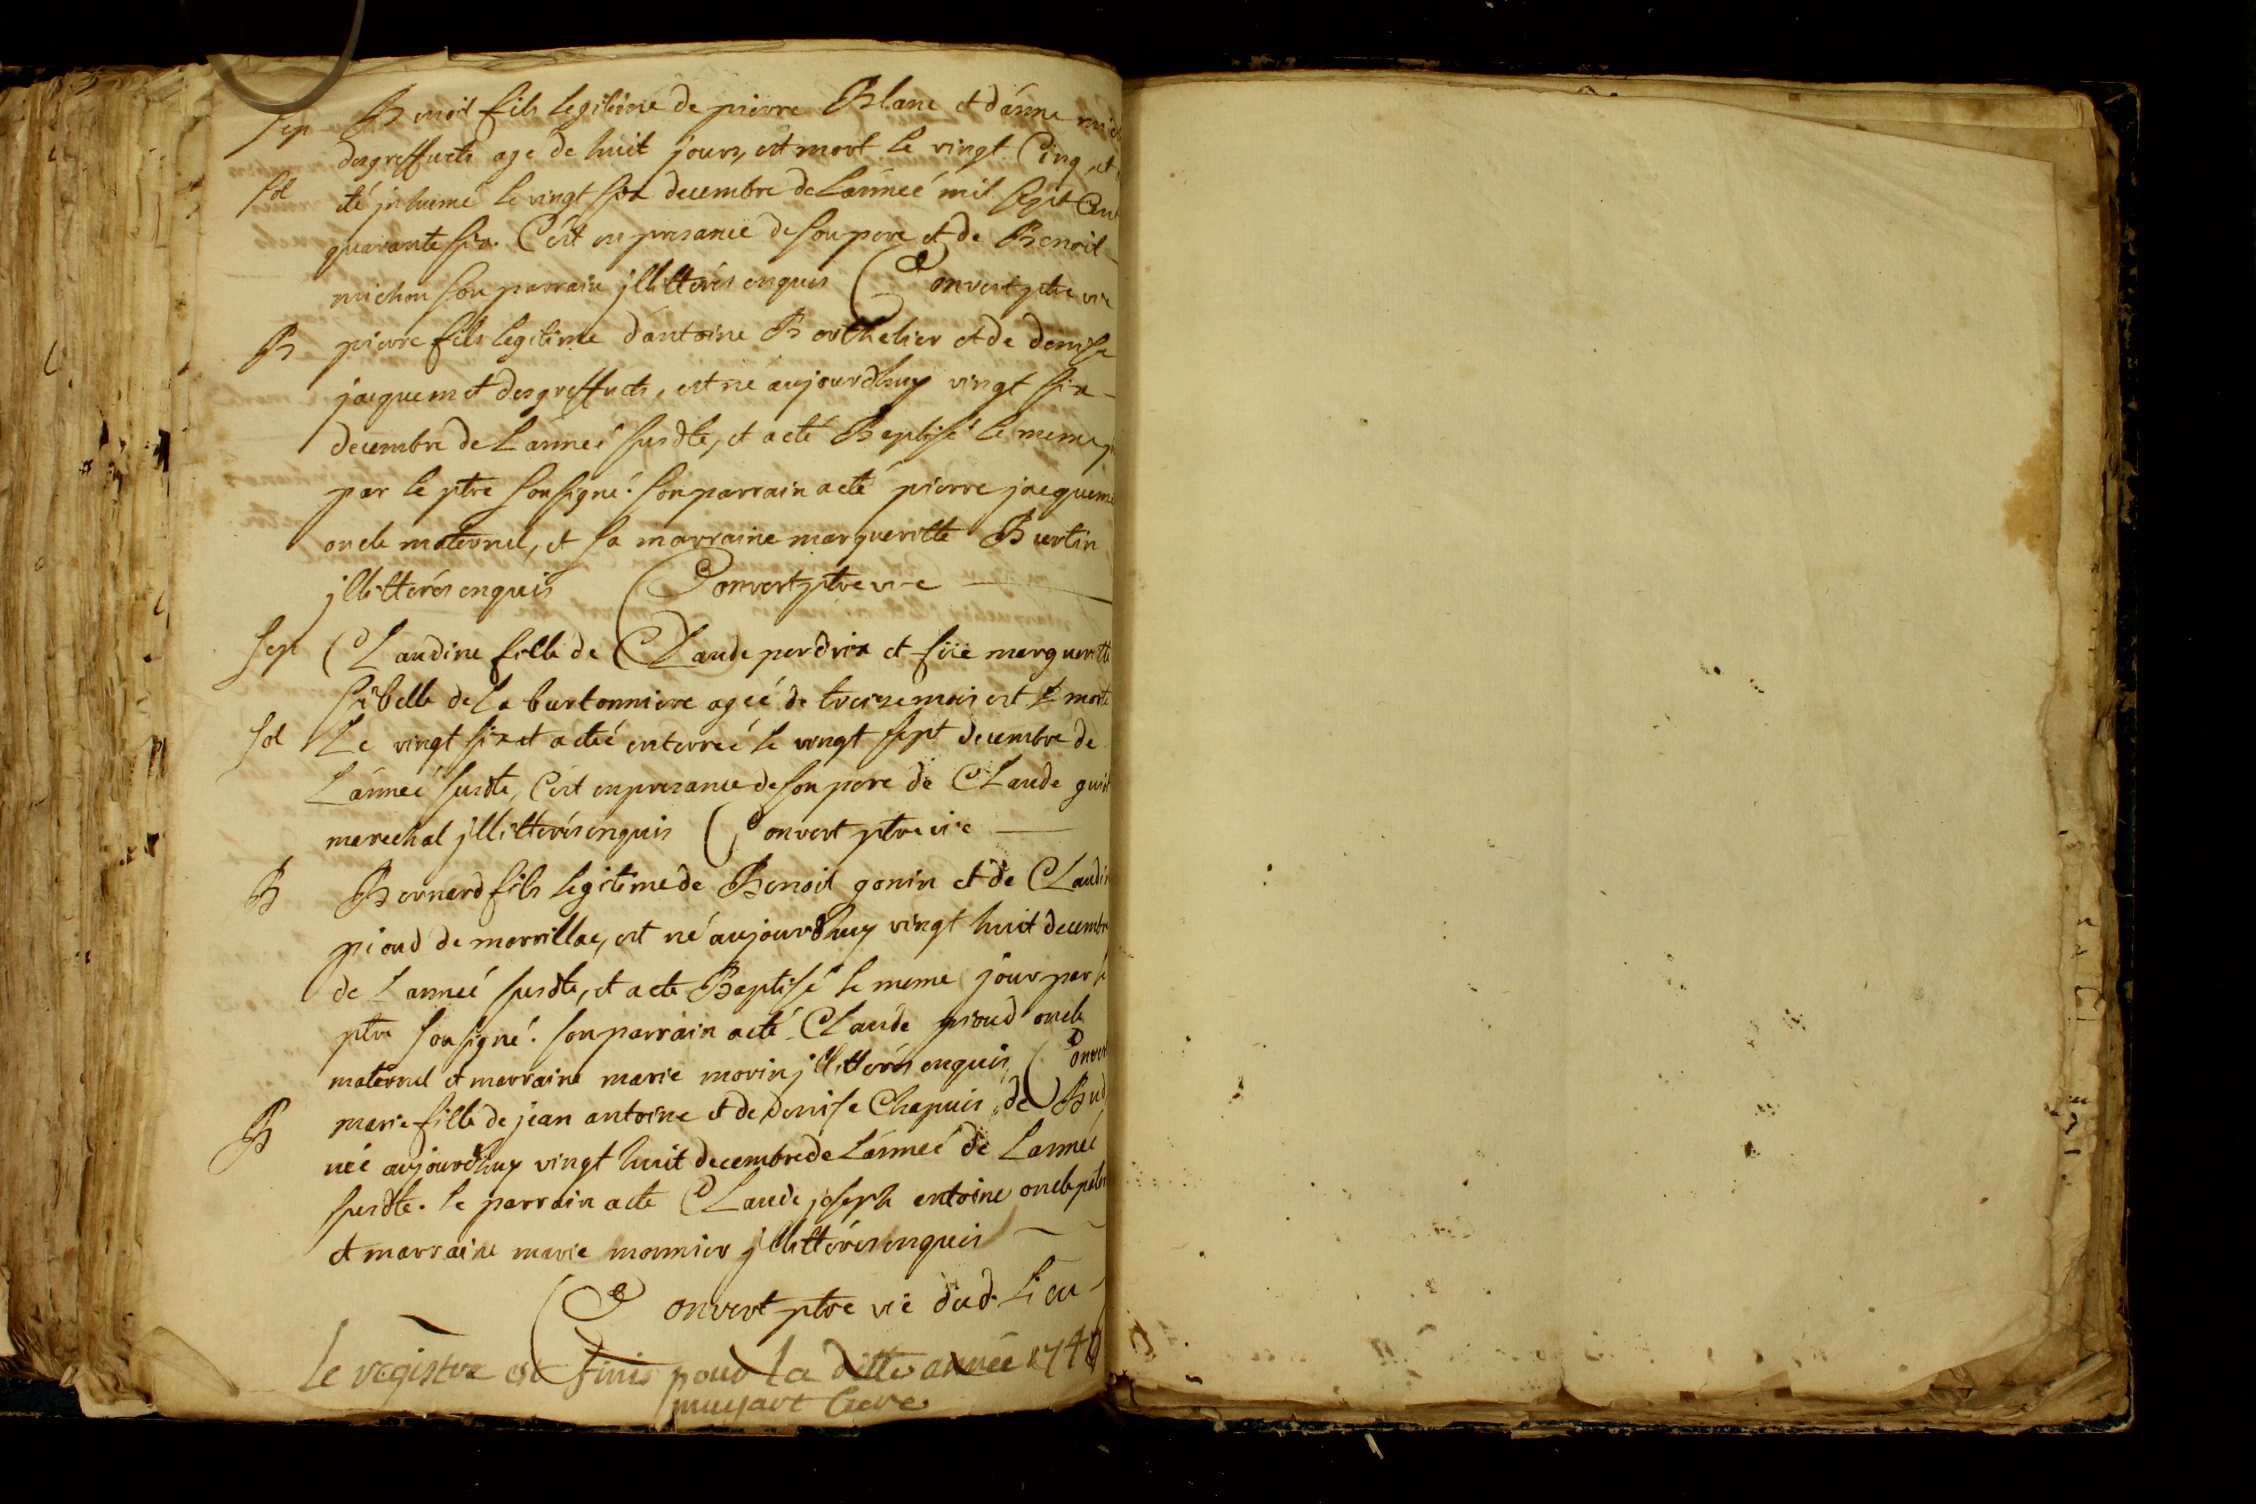 Sep Benoit fils legitime de pierre Blanc et d'anne
desgreffuets age de huit jours, est mort le vingt Cinq, et
sol eté jnhumé le vingt six decembre de L'anneé mil sept Cent
quarante six. C'est en presance de son pere et de Benoit
michon son parrain jllitterés enquis Convert ptre vre
B pierre fils legitime d'antoine Borthelier et de denise
jacquemet desgreffuets, est né aujourdhuy vingt six
decembre de L'anneé susdte, et a eté Baptisé le meme
par le ptre sousigné. son parrain a eté pierre jacqueme
oncle maternel, et sa marraine margueritte Burtin
jllitterés enquis Convert ptre vre
Sep Claudine fille de Claude perdrix et fue margueritte
sibelle de La burtonniere ageé de treize mois est morte
sol Le vingt six et a eteé enterreé le vingt sept decembre de
L'anneé susdte, C'est en presance de son pere de Claude
marechal jllitterés enquis Convert ptre vre
B Bernard fils legitime de Benoit gonin et de Claudin
pioud de marrillac, est né aujourdhuy vingt huit decembre
de L'anneé susdte, et a eté Baptisé le meme jour par le
ptre sousigné. son parrain a eté Claude pioud oncle
maternel et marraine marie morin jllitterés enquis Convert
B marie fille de jean antoine et de denise Chapuis de
neé aujourdhuy vingt huit decembre de L'anneé de L'anneé
susdte. le parrain a eté Claude joseph antoine oncle pater
et marraine marie monnier jllitterés enquis
Convert ptre vre dud. Lieu
Le registre est finis pour la ditte année 1746
muyart Cure